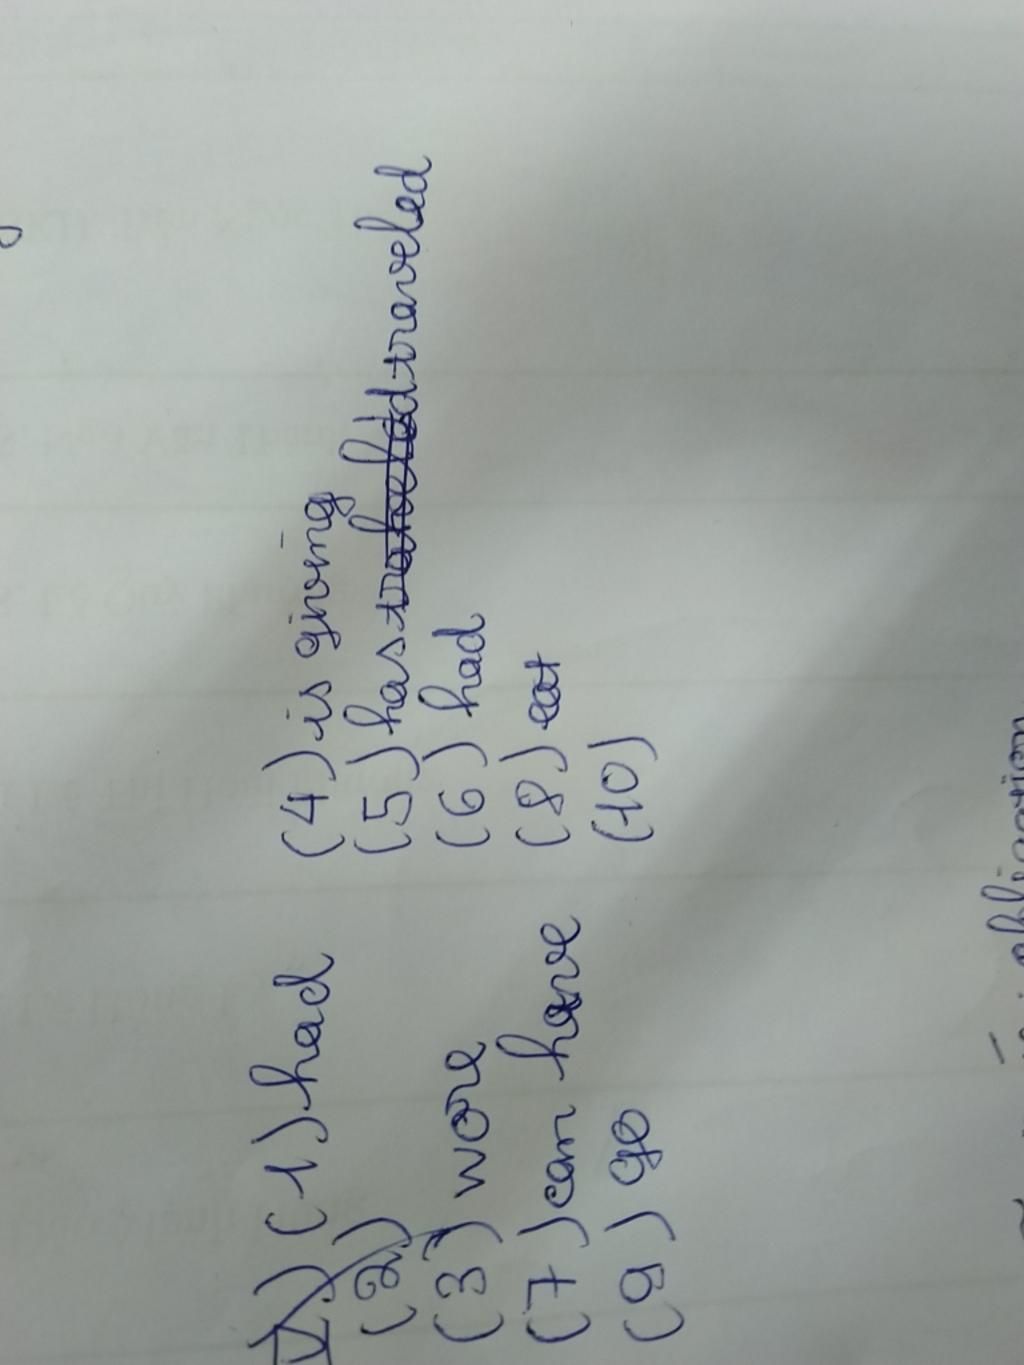 V) (1) had (4) is giving
(2) (5) has traveled
(3) wore (6) had
(7) can have (8) eat
(9) go (10)